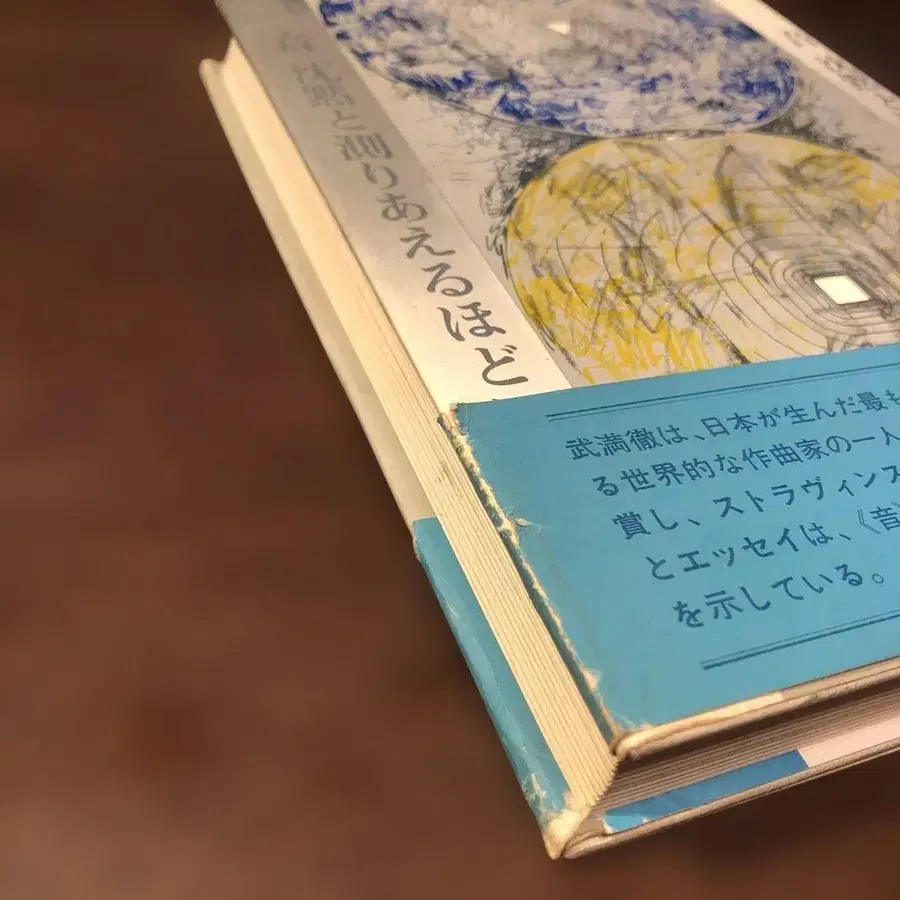 音、沈黙と測りあえるほど
武満徹は、日本が生んだ最も
る世界的な作曲家の一人
賞し、ストラヴィンス
とエッセイは、《音
を示している。